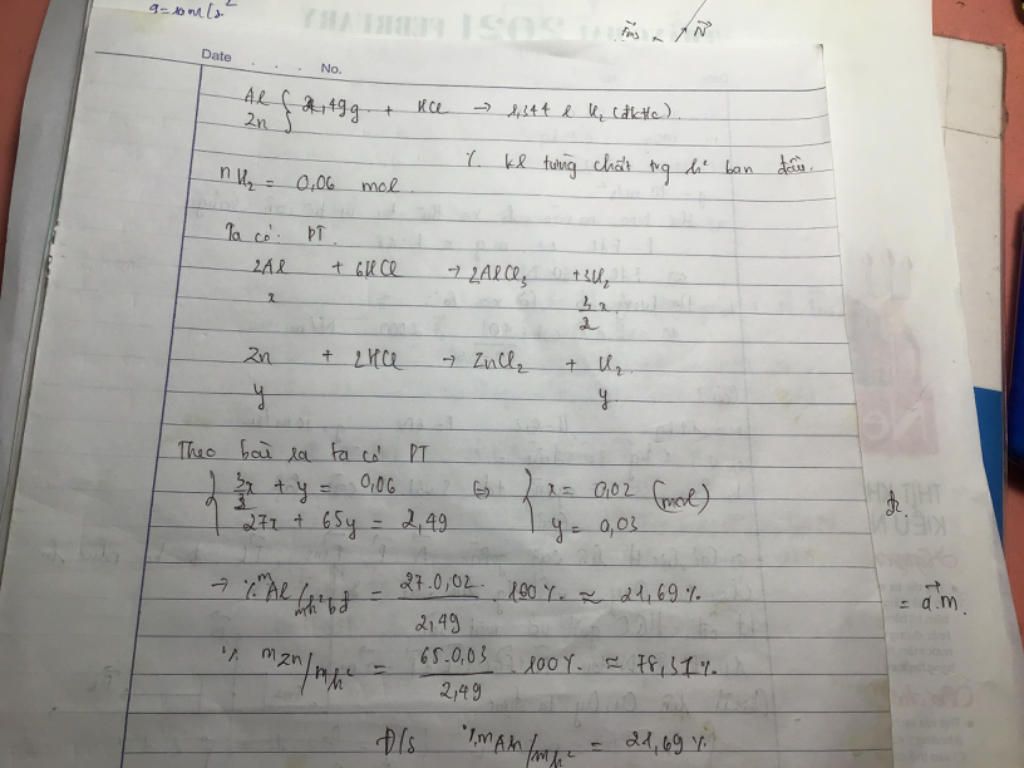 g=10m/s²
Fms N
Date . . . . No.
Al
Zn } 2,49g + HCl → 1,344 l H₂ (đktc).
% kl từng chất trg h² ban đầu.
nH₂ = 0,06 mol
Ta có: PT.
2Al + 6HCl → 2AlCl₃ + 3H₂
x 3/2 x
Zn + 2HCl → ZnCl₂ + H₂
y y
Theo bài ra ta có PT
{ 3/2 x + y = 0,06 ⇔ { x = 0,02 (mol)
27x + 65y = 2,49 y = 0,03
→ % mAl/mh² bđ = 27.0,02/2,49 . 100% ≈ 21,69%.
= a.m.
% mZn/mh² = 65.0,03/2,49 . 100% ≈ 78,31%.
Đ/s %mAl/mh² = 21,69%